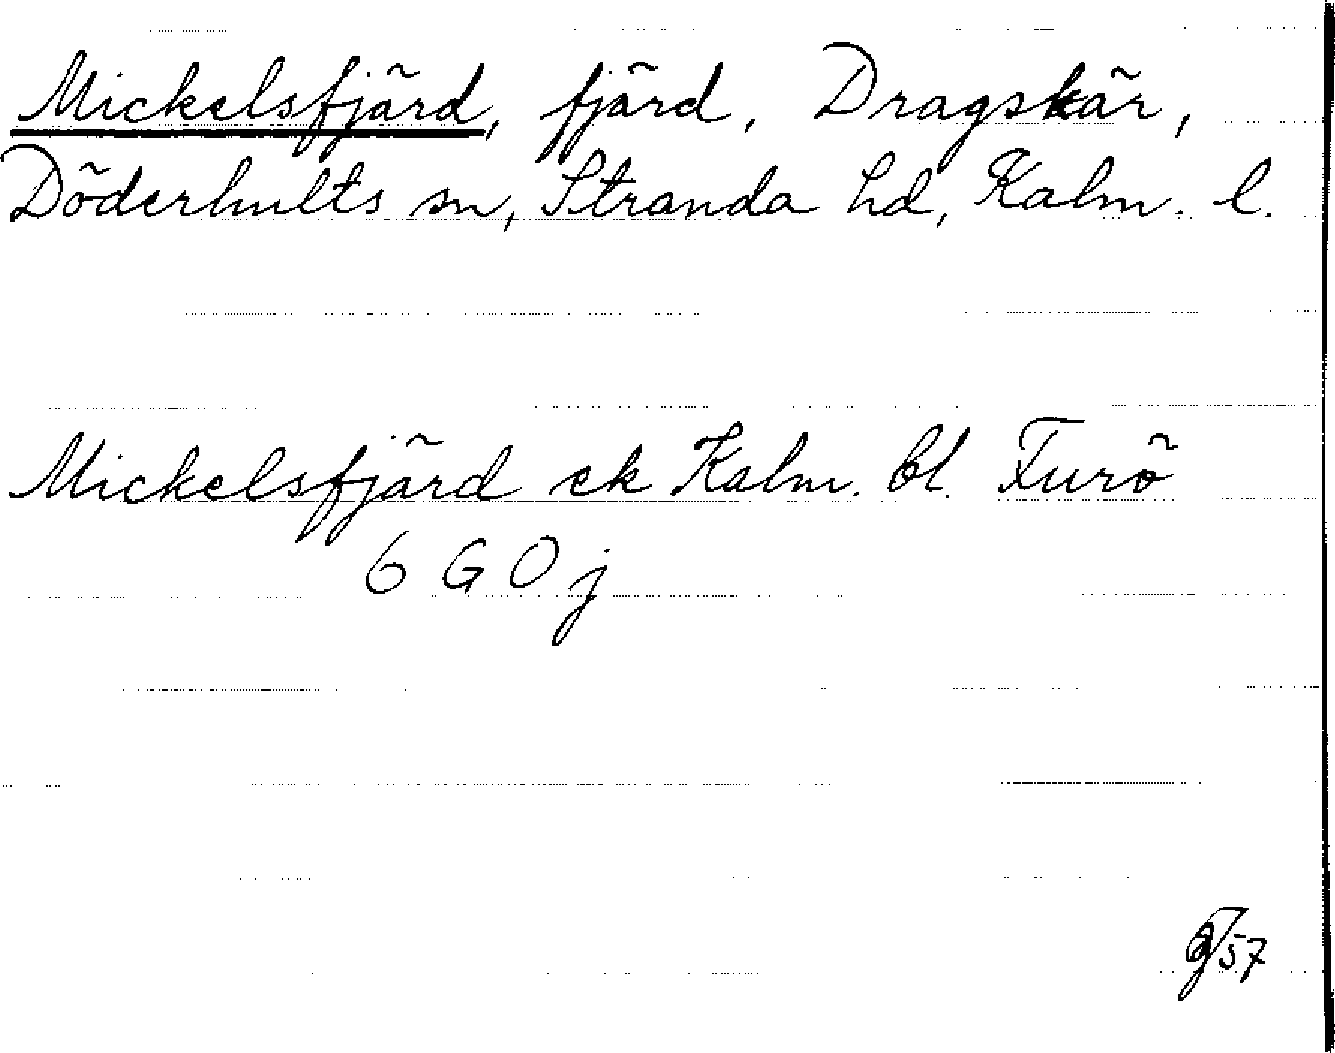 Mickelsfjärd, fjärd, Dragskär,
Döderhults sn, Stranda hd, Kalm. l.
Mickelsfjärd ek Kalm. bl. Furö
6 G O j
57